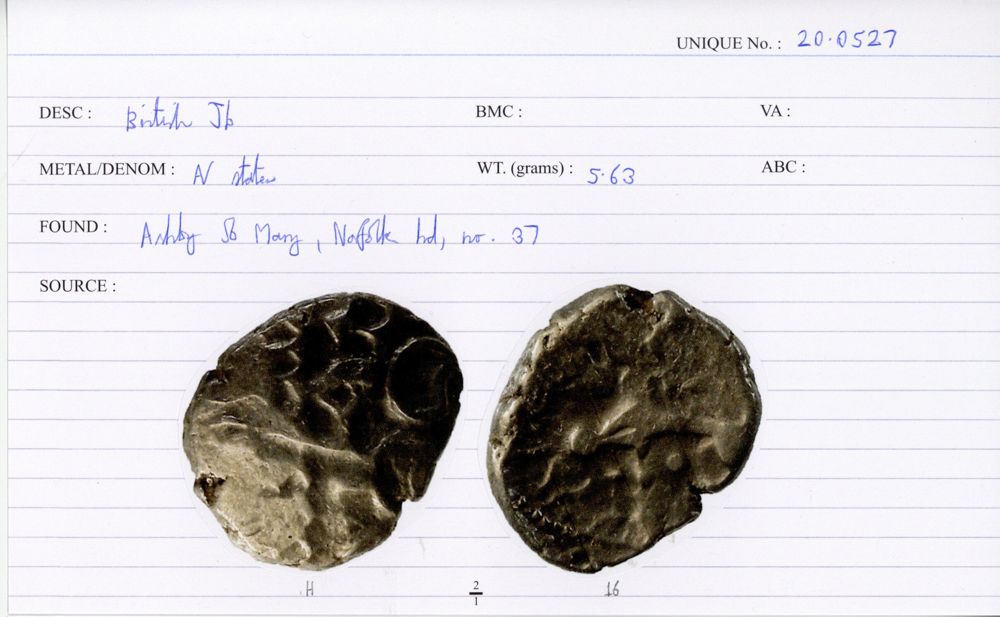 UNIQUE No. : 20.0527
DESC : British Jb BMC : VA :
METAL/DENOM : N stater WT. (grams) : 5.63 ABC :
FOUND : Ashby St Mary, Norfolk hd, no. 37
SOURCE :
H 2/1 16